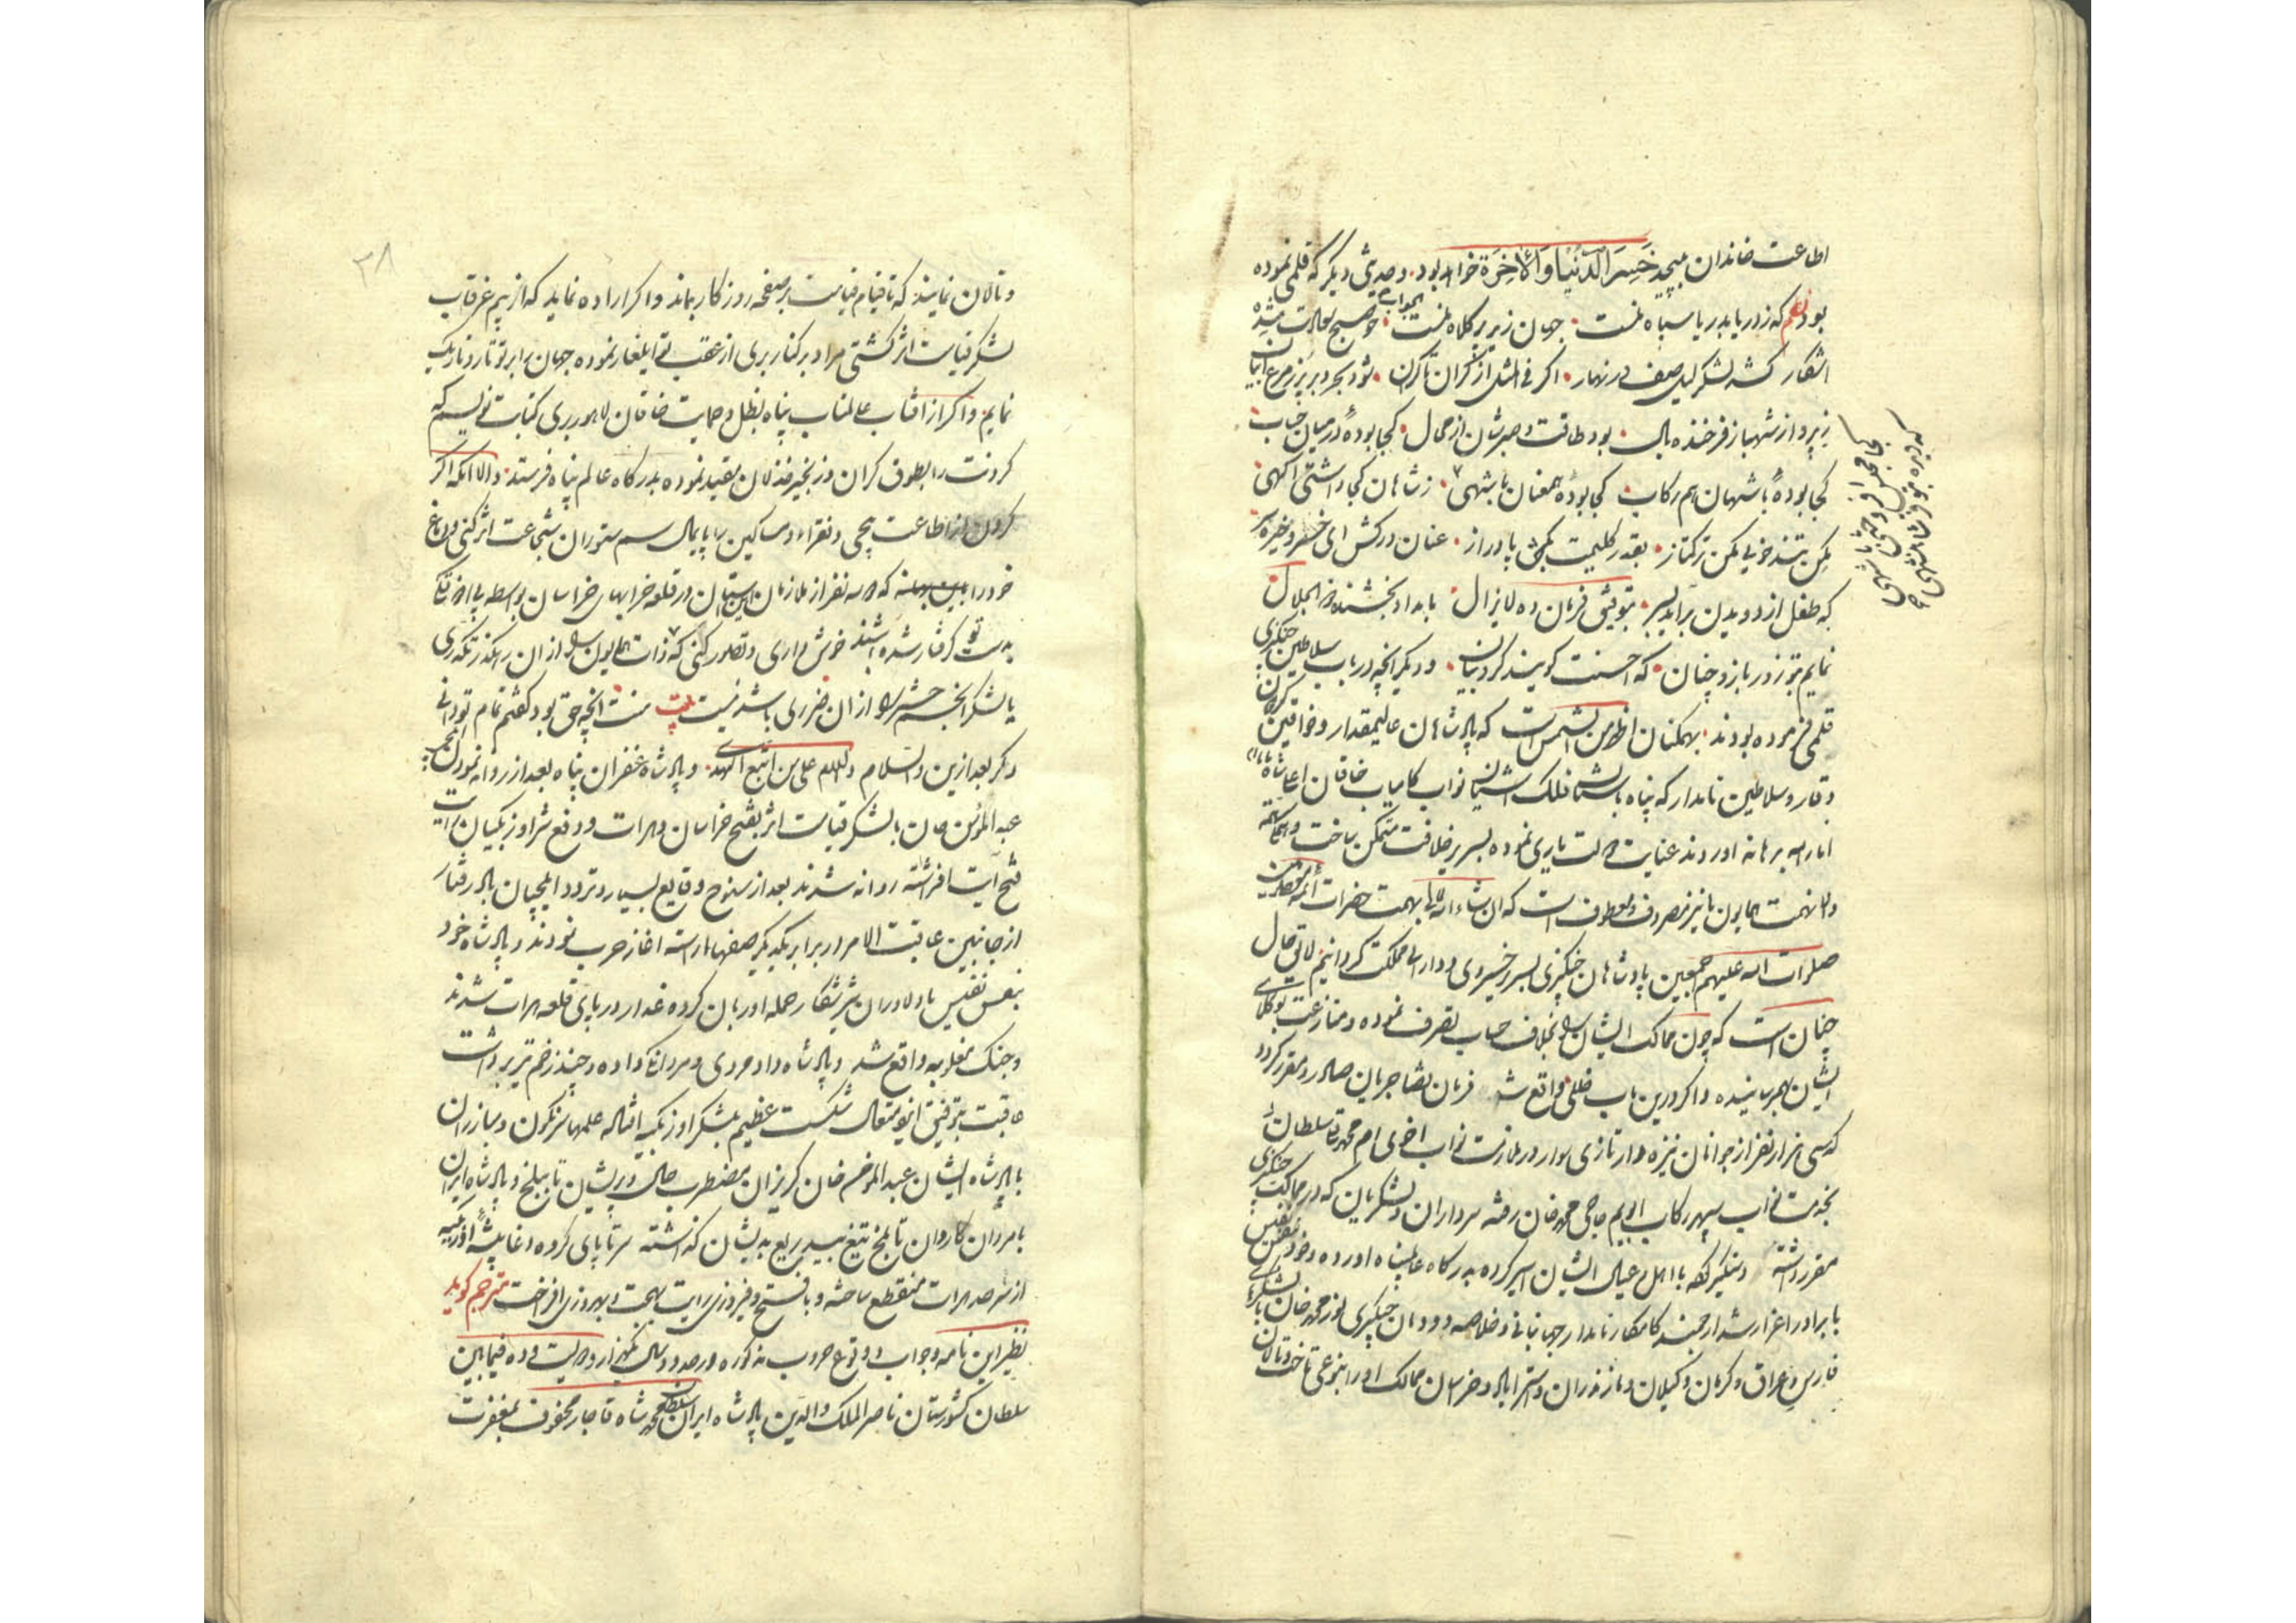 اطاعت خاندان مپیچد خَسِرَ الدُّنْیا وَالْاخِرَة خواهد بود و حدیثی دیگر که قلمی نموده
بودند که ز دریا بدریا سپاه منست جهان زیر پر کلاه منست جواب چو صبح
اشکار کشد لشکر لیل صف در نهار اکر فی المثل از کران تا کران شود بحر و بر پر ز مرغابیان
ز پرواز شهباز فرخنده بال بود طاقت و صبرشان از محال کجا بودهٔ در میان
کجا بودهٔ با شهان هم رکاب کجا بودهٔ همعنان با شهی ز شاهان کجا داشتی اکهی
مکن تند خویی مکن ترکتاز بقدر کلیمت بکش پا دراز عنان درکش ای خسرو خیره سر
که طفل از دویدن براید بسر بتوفیق فرمان ده لایزال بامداد بخشنده ذو الجلال
نمایم بتو زور بازو چنان که احسنت کویند کروبیان و دیکر انچه در باب سلاطین چنکیزی
قلمی فرموده بودند بهمکنان اظهر من الشمس است که پادشاهان عالیمقدار و خواقین
وقار و سلاطین نامدار که پناه باستان فلک اشتیان نواب کامیاب خاقان
انار الله برهانه اوردند عنایت و یاری نموده بسریر خلافت متمکن ساخت
و نهمت همایون ما نیز مصروف و معطوف است که ان شاء الله تعالی بهمت حضرات ائمه معصومین
صلوات الله علیهم اجمعین پادشاهان چنکیزی بسریر خسروی و دارایی مملکت کردانیم لایق حال
چنان است که چون ممالک ایشان را بخلاف حساب تصرف نموده و منازعت بوکلای
ایشان بهم رسانیده و اکر درین باب خللی واقع شد فرمان قضا جریان صادر و مقرر کردد
که سی هزار نفر از جوانان نیزه دار تازی سوار در ملازمت نواب اخوی ام محمد سلطان
بخدمت نواب سپهر رکاب ابویم حاجی محمد خان رفته سرداران و لشکریان که در ممالک چنکیزی
مقرر داشته دستکیر با اهل و عیال ایشان اسیر کرده بدرکاه عالمپناه اورده و خود بنفس نفیس
با برادر اعز ارشد ارجمند کامکار نامدار جهانبانی و خلاصه دودمان چنکیزی نور محمد خان با لشکرهای
فارس و عراق و کرمان و کیلان و مازندران و استراباد و خراسان ممالک او را بنوعی تاخت و تالان
کجا مجلس افروختی با شهی
که دیده بتو فرّ شاهنشهی
۳۸
و تالان نمایند که تا قیام قیامت بر صفحه روزکار بماند و اکر اراده نماید که از بیم غرقاب
لشکر قیامت اثر کشتی مراد بر کنار بری از عقب تو ایلغار نموده جهان برابر تو تار و تاریک
نمایم و اکر از افتاب عالمتاب پناه بظل و حمایت خاقان لاهور بری کتابت نویسم که
کردنت را بطوق کران و زنجیر مذلان مقید نموده بدرکاه عالم پناه فرستد و الا انکه اکر
کردن از اطاعت پیچی و فقراء و مساکین را پایمال سم ستوران شجاعت اثر کنی و دماغ
خود را که دو سه نفر از ملازمان این استان در قلعه خرابهای خراسان بواسطه بی اذوقکی
بدست تو کرفتار شده باشند خوش داری و تصور کنی که ذات همایون را از ان رهکذر تکدری
یا لشکر انجم حشر را از ان ضرری باشد نیست بیت منت انچه حق بود کفتم تمام تو دانی
دکر بعد ازین والسلام والسلام علی من اتبع الهدی و پادشاه غفران پناه بعد از روانه نمودن
عبد المومن خان با لشکر قیامت اثر بفتح خراسان و هرات و دفع شر اوزبکیان رایت
فتح آیت افراشته روانه شدند بعد از سنوح وقایع بسیار و تردد ایلچیان باد رفتار
از جانبین عاقبت الامر در برابر یکدیکر صفها اراسته اغاز حرب نمودند و پادشاه خود
بنفس نفیس با دلاوران شیر شکار حمله اور بان کرده غدار در پای قلعه هرات شدند
و جنک مغلوبه واقع شد و پادشاه داد مردی و مردانکی داده و چند زخم تیر برداشت
عاقبت بتوفیق ایزد متعال شکست عظیم بلشکر اوزبکیه افتاد علمها سرنکون و مبارزان
با پادشاه ایشان عبد المومن خان کریزان مضطرب حال و پریشان تا ببلخ و پادشاه ایران
با مردان کاروان تا بلخ تیغ بیدریغ بدیشان کذاشته سر تا پای کروه دغا پیشه اوزبکیه
از سرحد هرات منقطع ساخته و با فتح و فیروزی رایت بهجت و بهروزی افراخت مترجم کوید
نظیر این نامه و جواب و وقوع حروب مذکوره در حدود سال یکهزار و دویست و ده فیمابین
سلطان کشورستان ناصر الملک والدین پادشاه ایران سلطان محمد شاه قاجار محفوف بمغفرت